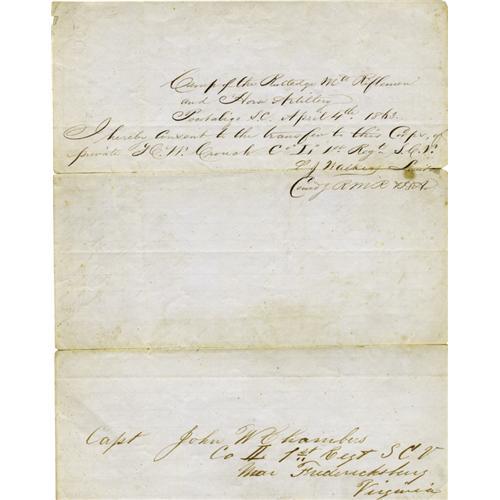 Camp of the Rutledge Mtd Riflemen
and Horse Artillery
Pocotaligo S.C. April 4th 1863.
I hereby consent to the transfer to this Corps, of
private H. W. Crouch Co 1st Regt S.C.V.
Comdg R M R & H A
Capt John W Chambers
Co H 1st Regt S C V
Near Fredericksburg
Virginia